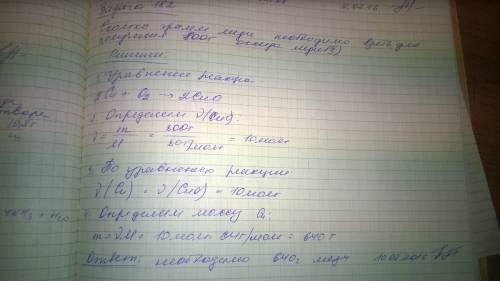 Задача №2
Сколько грамм меди необходимо взять для
получения 800г оксида меди(II)
Решение:
1. Уравнение реакции
2Cu + O₂ → 2CuO
2. Определяем ν(CuO):
ν = m/M = 800г/80г/моль = 10моль
3. По уравнению реакции
ν(Cu) = ν(CuO) = 10моль
4. Определяем массу Cu:
m = νM = 10моль 64г/моль = 640г
Ответ: необходимо 640г меди